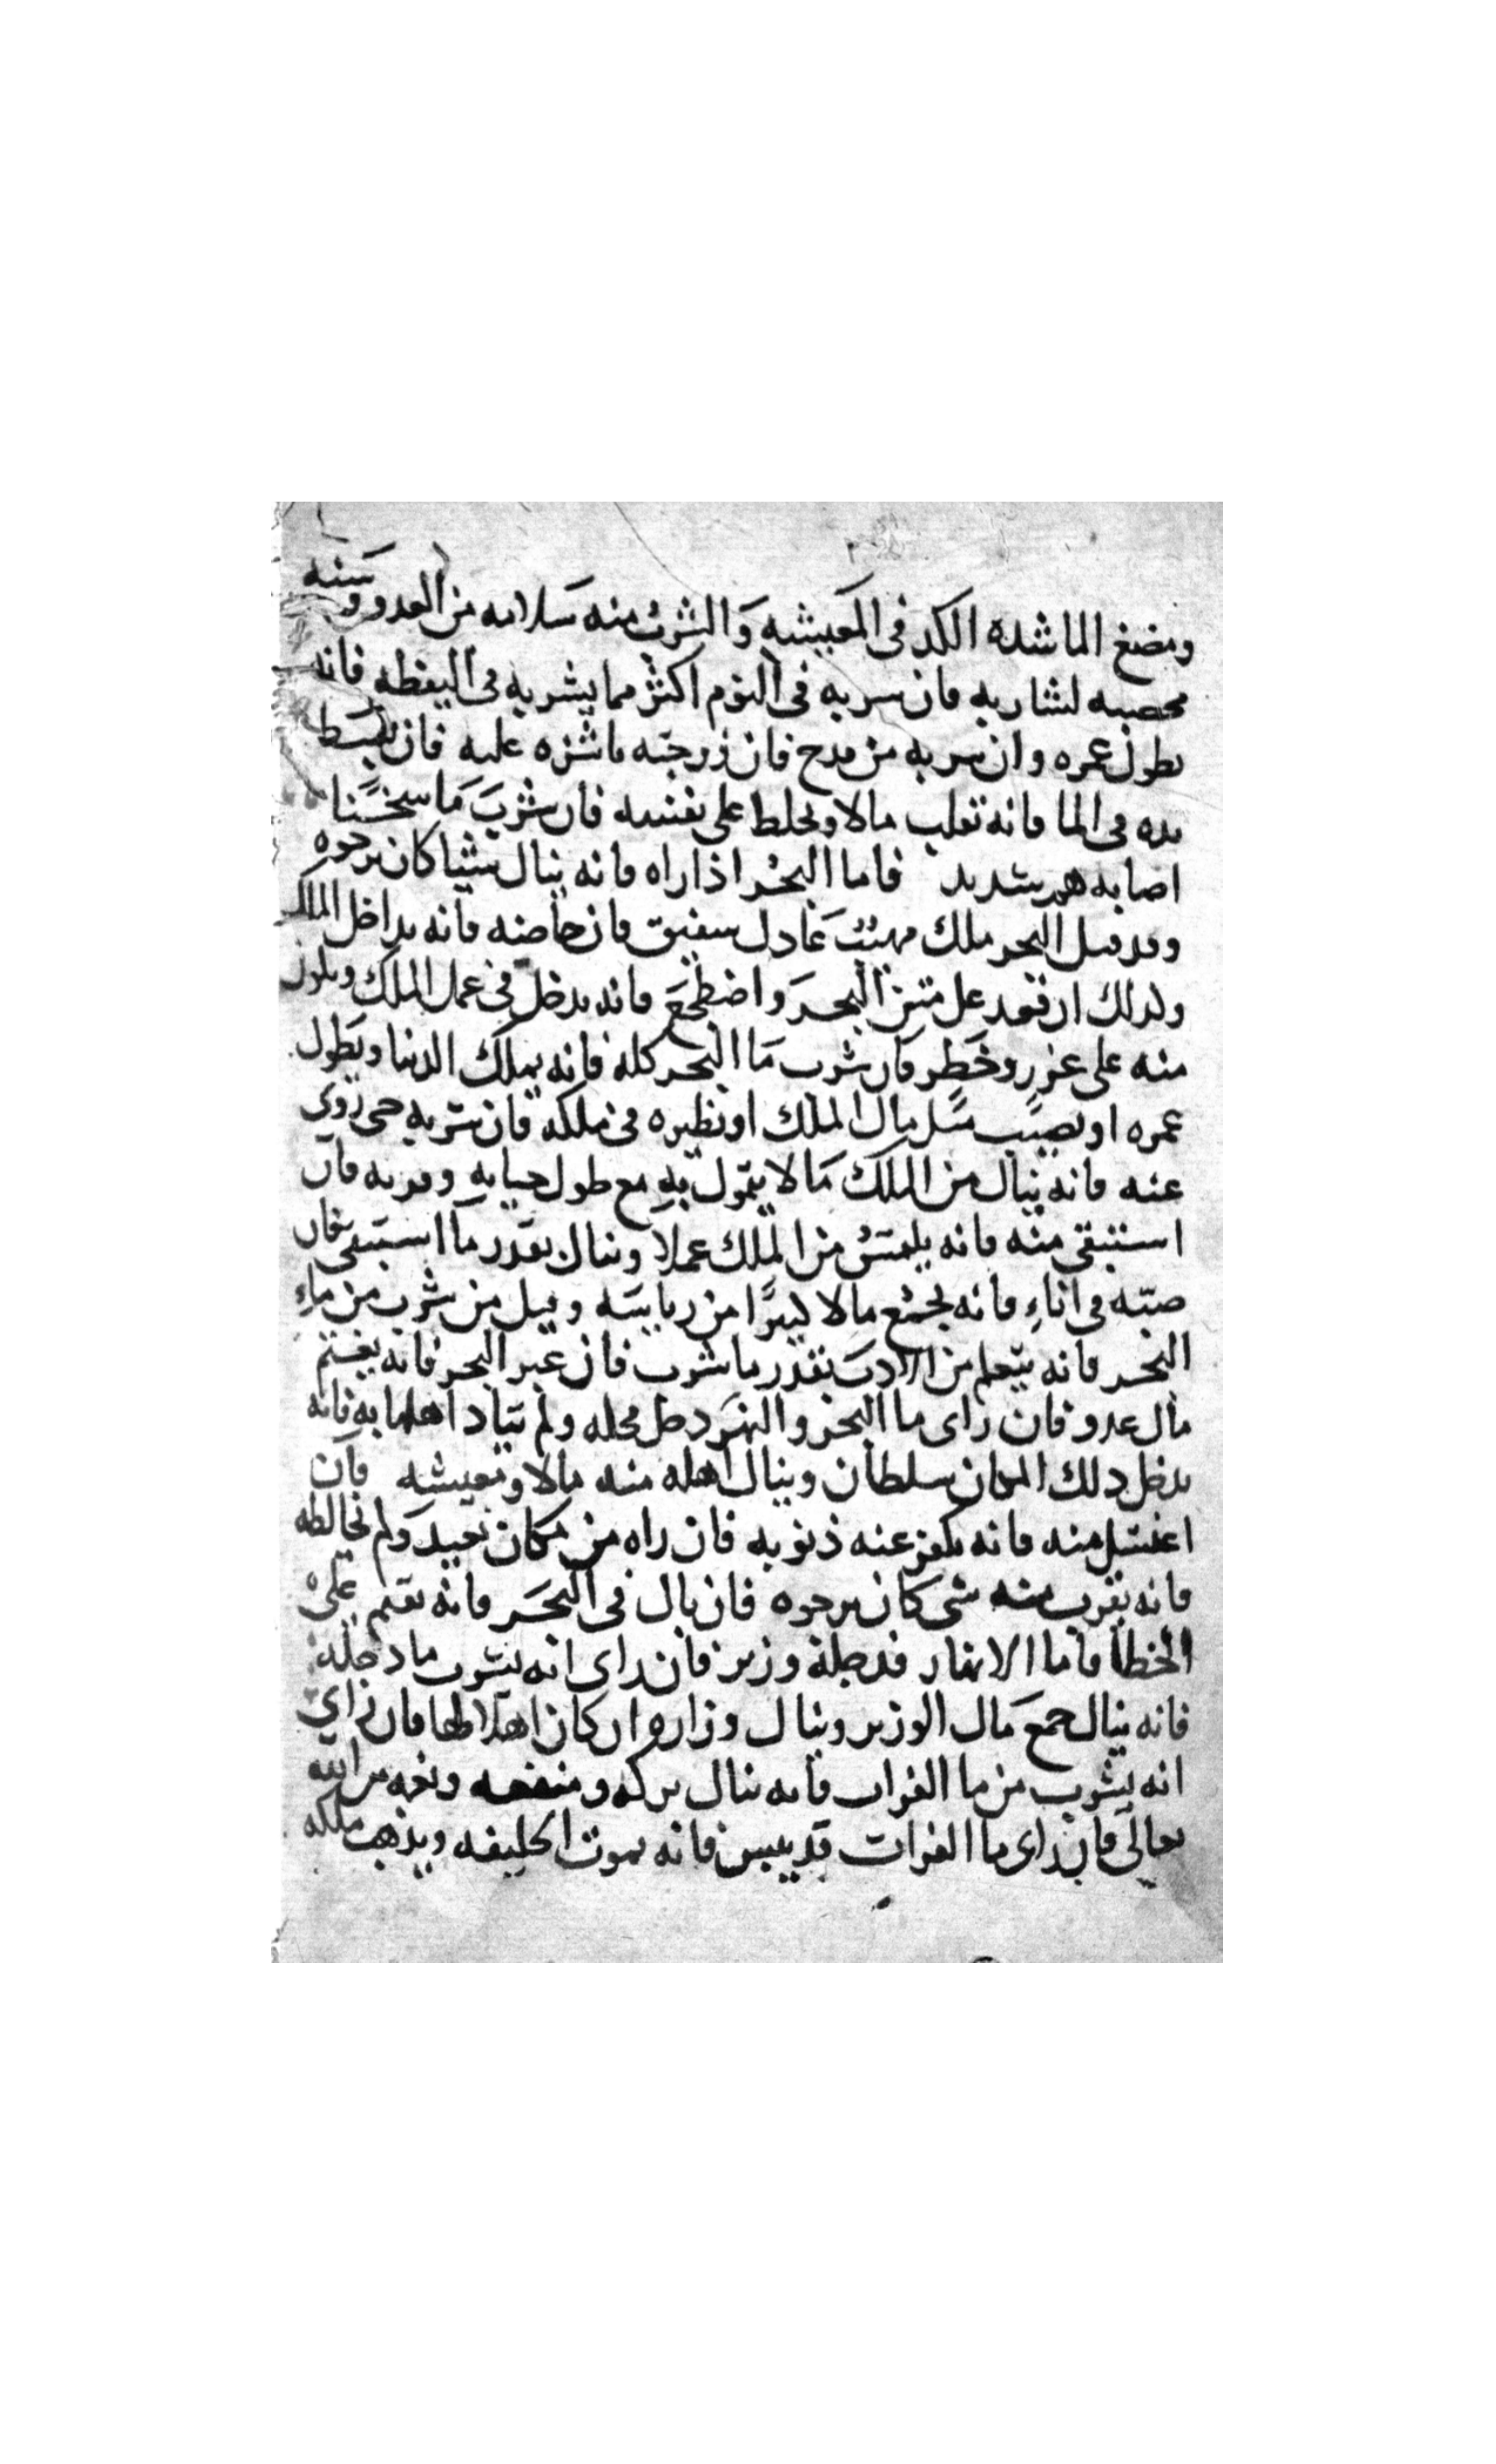 ومضغ الما شده الكد فى المعيشه والشرب منه سلامه من العدو وسنه
مخصبه لشاربه فان شربه فى النوم اكثر مما يشربه فى اليقظه فانه
يطول عمره وان شربه من قدح فان زوجته ناشزه عليه فان بسط
يده فى الما فانه تقلب مالا ويخلط على نفسه فان شرب ما سخنا
اصابه هم شديد فاما البحر اذا راه فانه ينال شيئا كان يرجوه
وقد قيل البحر ملك مهيب عادل شفيق فان خاضه فانه يداخل الملك
ولذلك ان قعد على متن البحر واضطجع فانه يدخل فى عمل الملك ويكون
منه على غرر وخطر فان شرب ما البحر كله فانه يملك الدنيا ويطول
عمره او يصيب مثل مال الملك او نظيره فى ملكه فان شربه حى روى
عنه فانه ينال من الملك مالا يتمول به مع طول حياته وقوته فان
استقى منه فانه يلتمس من الملك عملا وينال بقدر ما استسقى فان
صبه فى اناء فانه يجمع مالا كثيرا من رياسه وقيل من شرب من ماء
البحر فانه يتعلم من الادب بقدر ما شرب فان عبر البحر فانه يغنم
مال عدو فان راى ما البحر والنهر دخل محله ولم يتاد اهلها به فانه
يدخل ذلك المكان سلطان وينال اهله منه مالا ومعيشه فان
اغتسل منه فانه يكفر عنه ذنوبه فان راه من مكان بعيد ولم يخالطه
فانه يقرب منه شى كان يرجوه فان بال فى البحر فانه يقيم على
الخطا فاما الانهار فدجلة وزير فان راى انه يشرب ما دجله
فانه ينال جمع مال الوزير وينال وزاره ان كان اهلا لها فان راى
انه يشرب من ما الفرات فانه ينال بركه ومنفعه ونعمه من الله
تعالى فان راى ما الفرات قد يبس فانه يموت الخليفه ويذهب ملكه